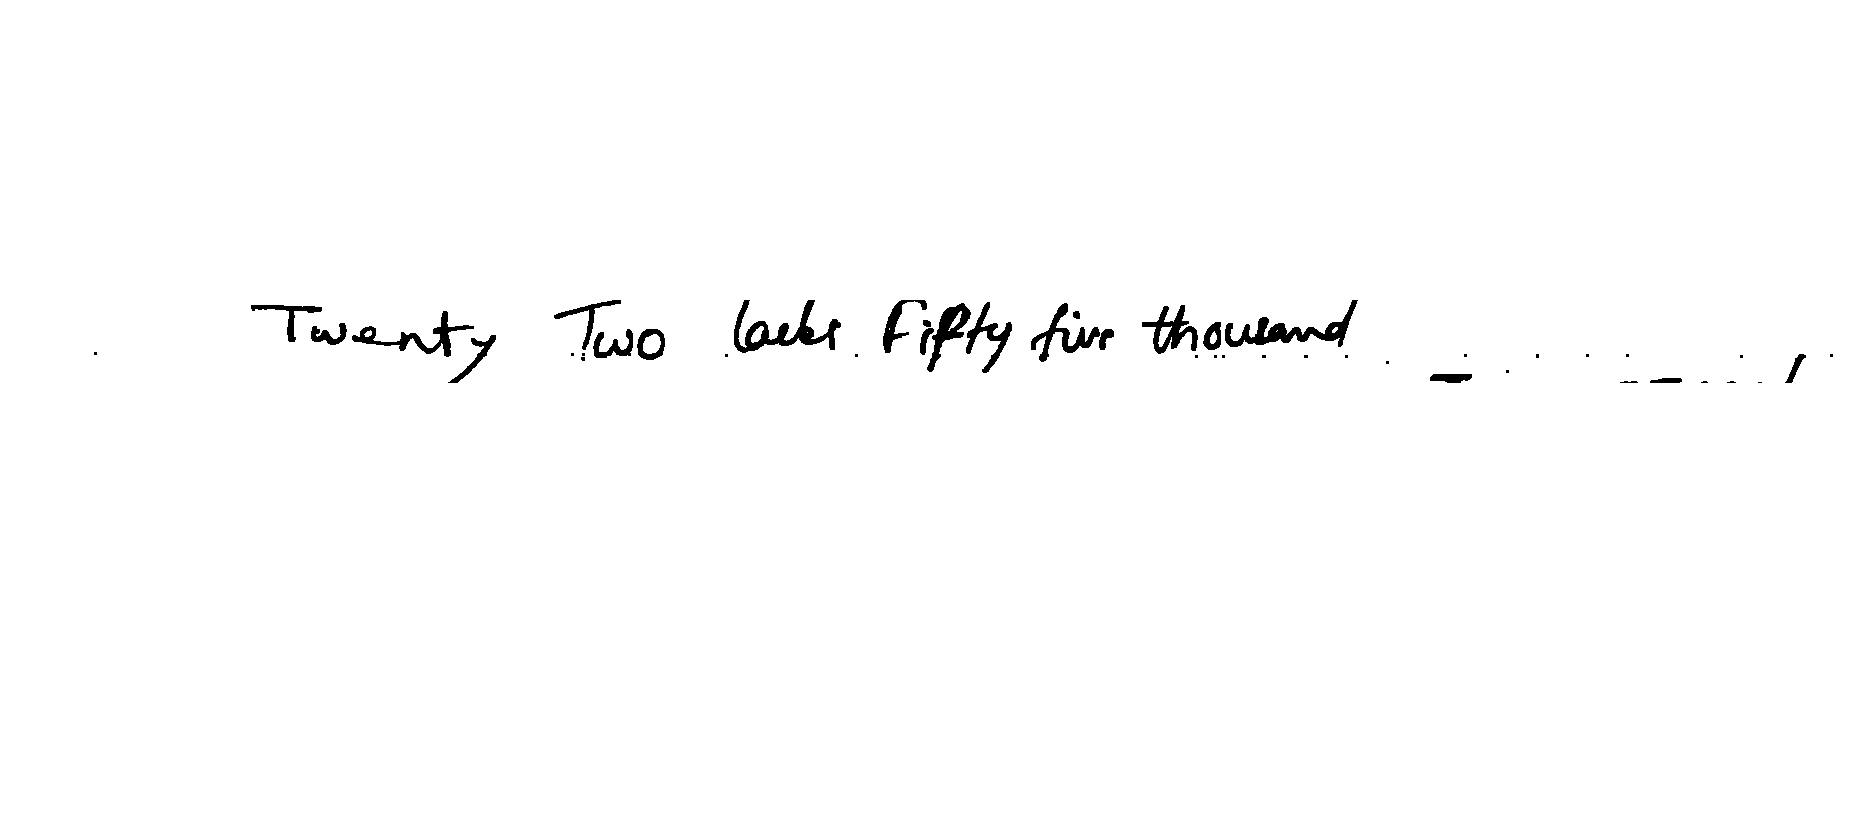 Twenty Two lacks Fifty five thousand